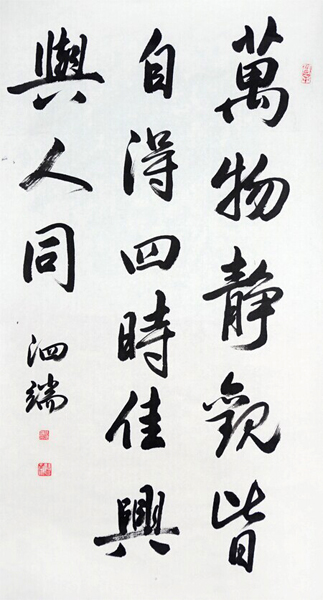 萬物靜觀皆
自得四時佳興
與人同
泗端